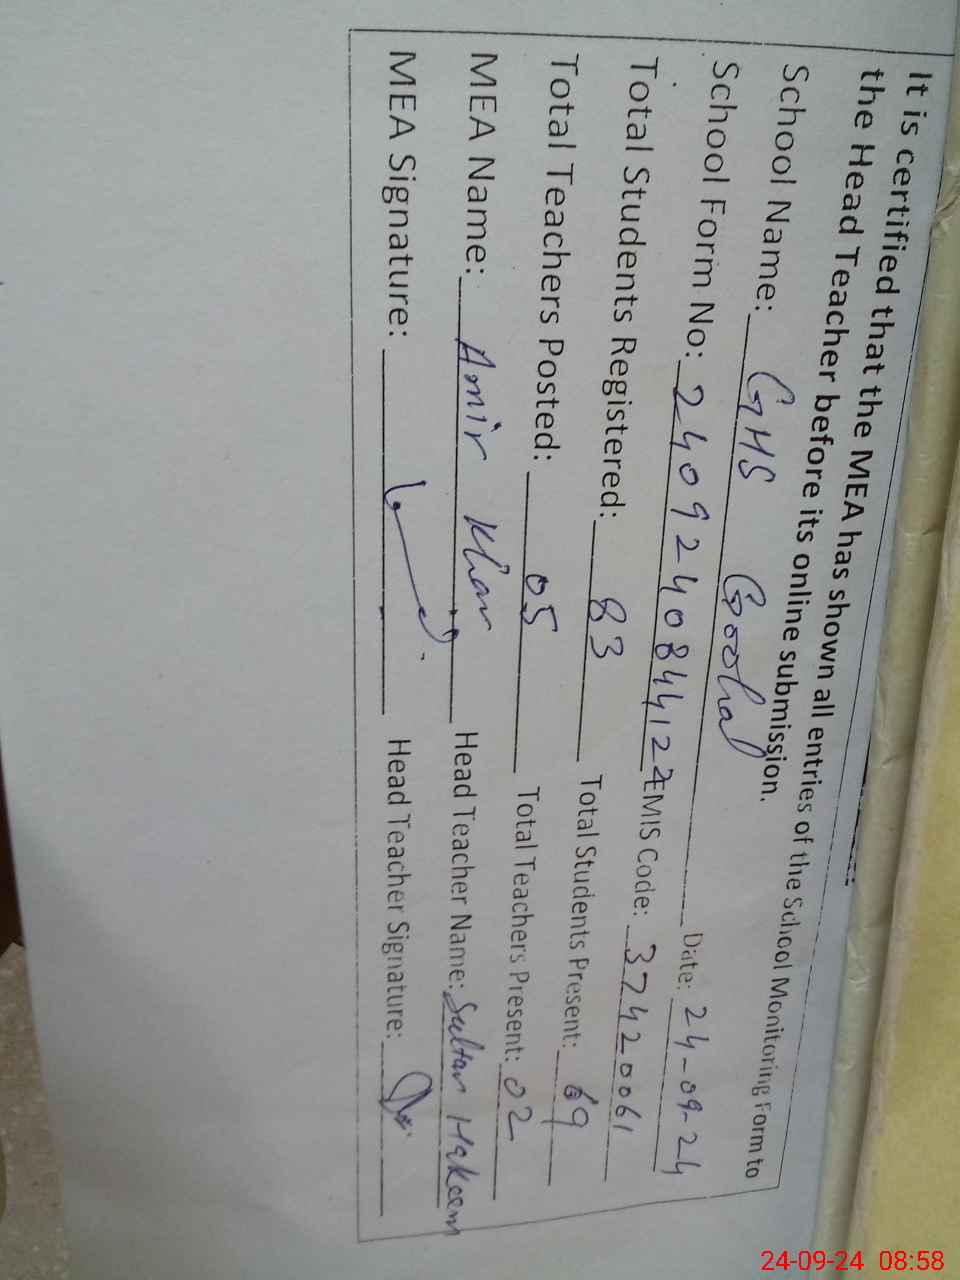 It is certified that the MEA has shown all entries of the School Monitoring Form to
the Head Teacher before its online submission.
School Name: GHS Goohal Date: 24-09-24
School Form No: 2409240844122 EMIS Code: 37420061
Total Students Registered: 83 Total Students Present: 69
Total Teachers Posted: 05 Total Teachers Present: 02
MEA Name: Amir Khan Head Teacher Name: Sultan Hakeem
MEA Signature: Head Teacher Signature:
24-09-24 08:58